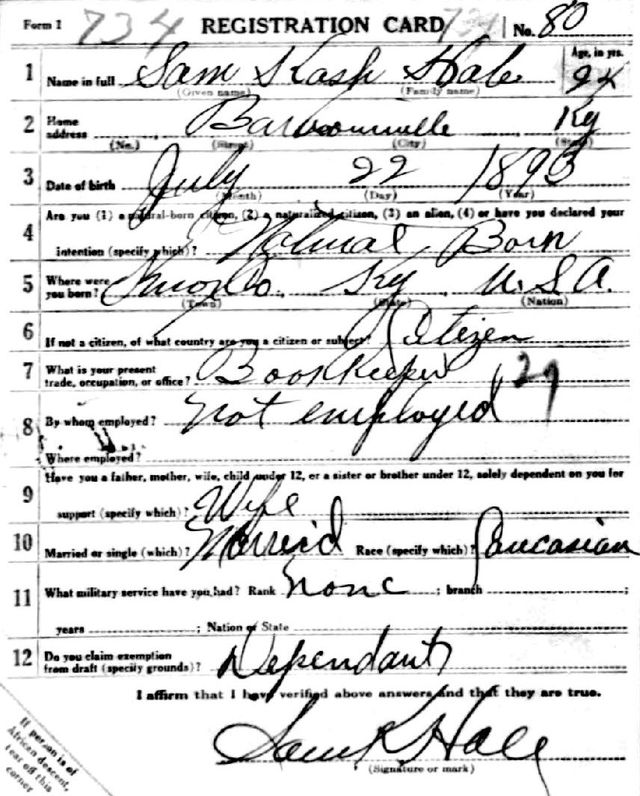 Form 1 734 REGISTRATION CARD 734 No. 80
1 Name in full Sam Kash Hale Age, in yrs. 24
(Given name) (Family name)
2 Home address Barbourville Ky
(No.) (Street) (City) (State)
3 Date of birth July 22 1893
(Month) (Day) (Year)
Are you (1) a natural-born citizen, (2) a naturalized citizen, (3) an alien, (4) or have you declared your
4 intention (specify which)? Natural Born
5 Where were you born? Ky. U.S.A.
(Town) (State) (Nation)
6 If not a citizen, of what country are you a citizen or subject? Citizen
7 What is your present trade, occupation, or office? Bookkeeper 29
8 By whom employed? Not employed
Where employed?
Have you a father, mother, wife, child under 12, or a sister or brother under 12, solely dependent on you for
9 support (specify which)? Wife
10 Married or single (which)? Married Race (specify which)? Caucasian
11 What military service have you had? Rank None ; branch ;
years ; Nation or State
12 Do you claim exemption from draft (specify grounds)? Dependants
I affirm that I have verified above answers and that they are true.
Sam K Hale
(Signature or mark)
If person is of
African descent,
tear off this
corner.